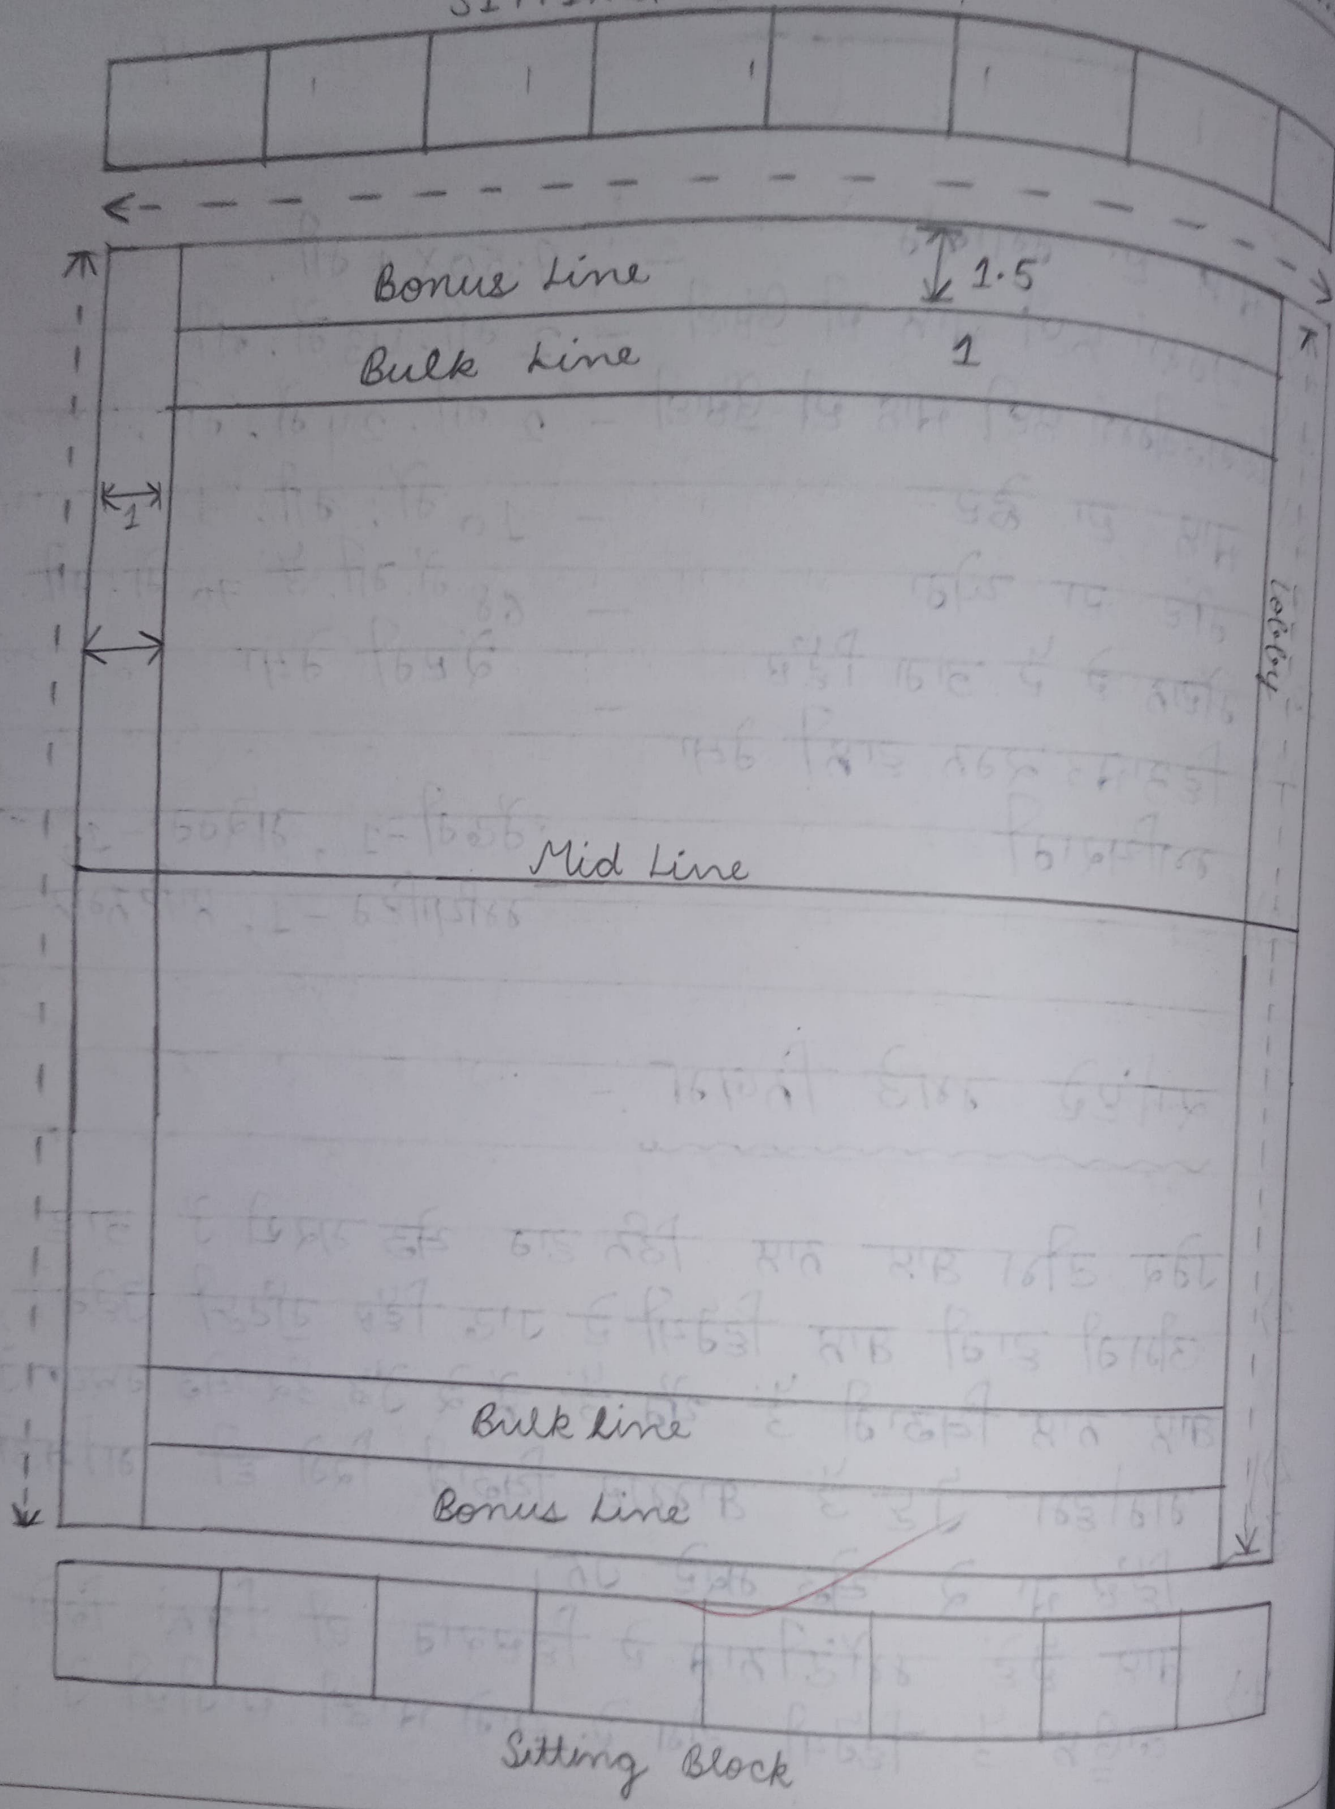 Bonus Line 1.5
Bulk Line 1
1
Lobby
Mid Line
Bulk line
Bonus Line
Sitting Block